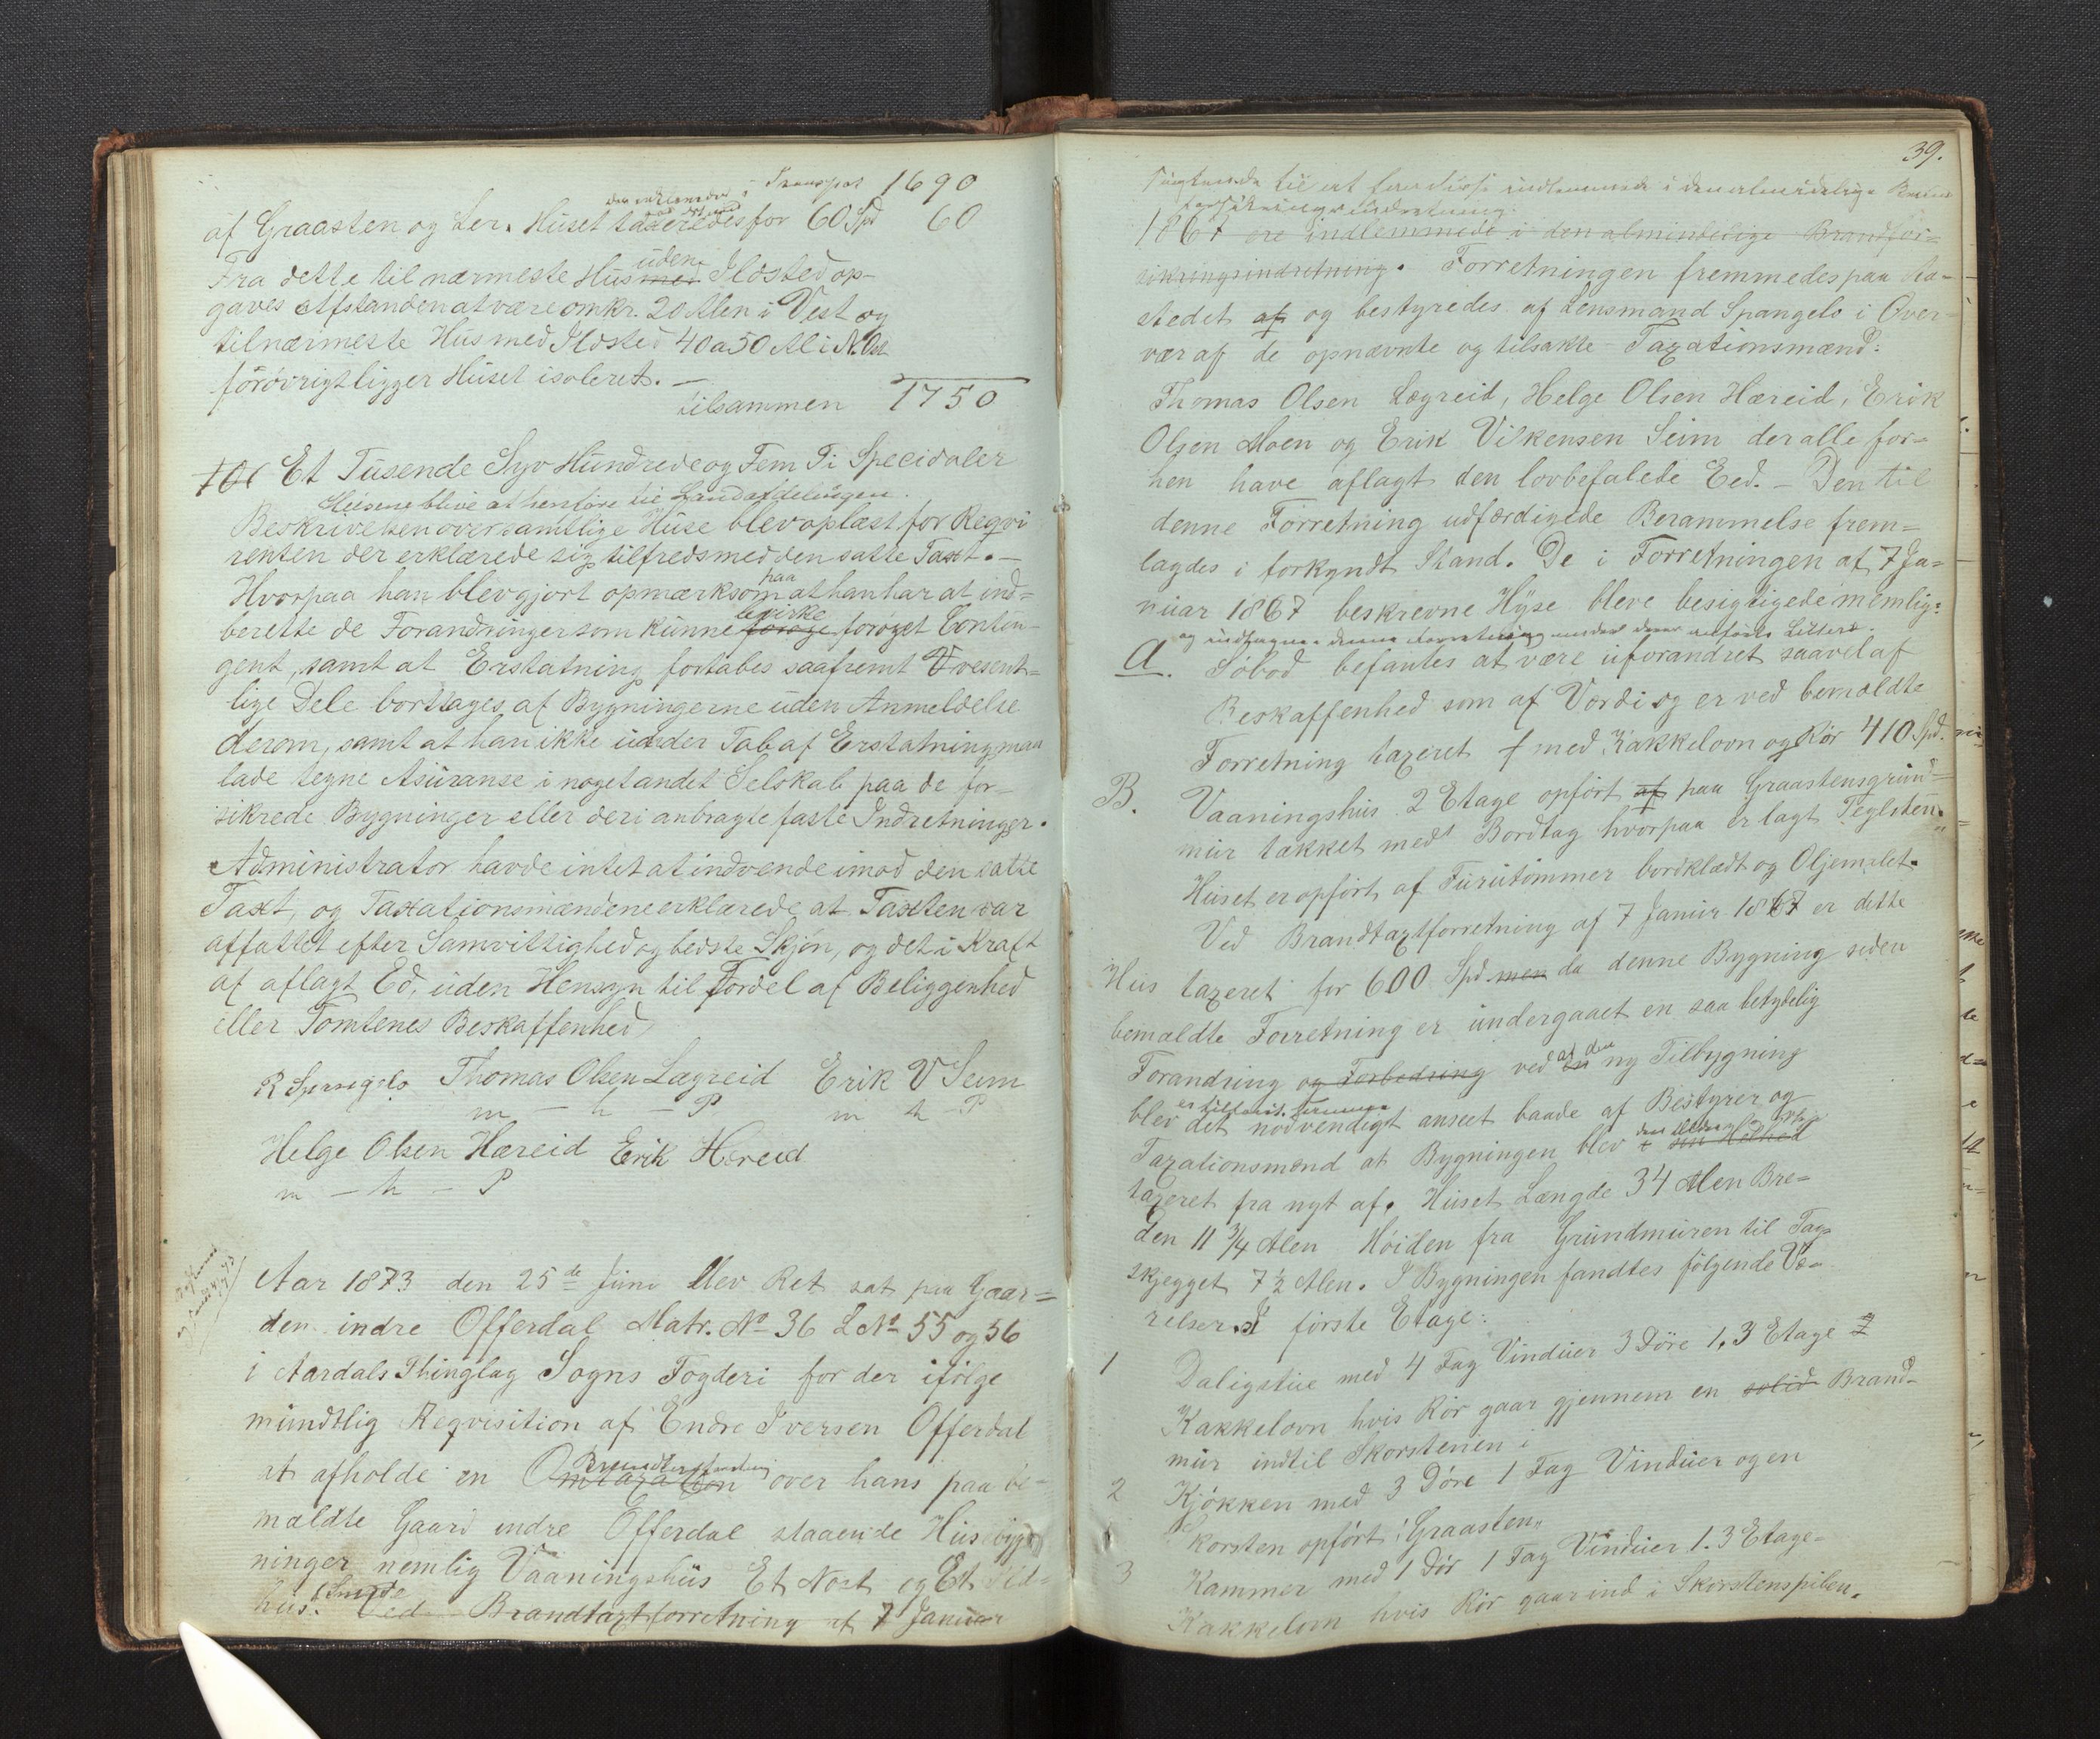 Transport 1690
af Graasten og Ler. Huset taxeredes for 60 Spd 60
uden
Fra dette til nærmeste Hus med Ildsted op-
gaves Afstanden at være omkr. 20 Alen i Vest og
til nærmeste Hus med Ildsted 40 a 50 Al i N. Ost
forövrigt ligger Huset isoleret. —
tilsammen 1750
Et Tusende Syv Hundrede og Fem Ti Specidaler
Husene blive at henföre til Landafdelingen.
Beskrivelsen over samtlige Huse blev oplæst for Reqvi
renten der erklærede sig tilfreds med den satte Taxt. —
paa
Hvorpaa han blev gjort opmærksom at han har at ind=
bevirke
berette de Forandringer som kunne foröge foröget Contin-
gent, samt at Erstatning fortabes saafremt vesent=
lige Dele borttages af Bygningerne uden Anmeldelse
derom, samt at han ikke under Tab af Erstatning maa
lade tegne Asuranse i noget andet Selskab paa de for-
sikrede Bygninger eller deri anbragte faste Indretninger.
Administrator havde intet at indvende imod den satte
Taxt, og Taxationsmændene erklærede at Taxten var
affattet efter Samvittighed og bedste Skjön, og det i Kraft
af aflagt Ed, uden Hensyn til Fordel af Beliggenhed
eller Tomtenes Beskaffenhed
R Spangelo Thomas Olsen Lægreid Erik V Seim
m – h – P m h – P
Helge Olsen Hæreid Erik Hereid
m – h – P
Aar 1873 den 25de Juni blev Ret sat paa Gaar=
den indre Offerdal Matr. No 36 L No 55 og 56
i Aardals Thinglag Sogns Fogderi for der ifölge
mundtlig Reqvisition af Endre Iversen Offerdal
at afholde en Omtaxation over hans paa be-
mældte Gaard indre Offerdal staaende Husbyg
ninger nemlig Vaaningshus Et Nost og Et Ild-
hus. Ved Brandtaxtforretning af 7 Januar
39.
til at indlemmede i den almindelige Brand
forsikringsindretning.
1867 ere indlemmede i den almindelige Brandfor=
sikringsindretning. Forretningen fremmedes paa Aa-
stedet af og bestyredes af Lensmand Spangelo i Over-
vær af de opnævnte og tilsakte Taxationsmænd:
Thomas Olsen Lægreid, Helge Olsen Hæreid, Erik
Olsen Moen og Erik Vilkensen Seim der alle for=
hen have aflagt den lovbefalede Eed. — Den til
denne Forretning udfærdigede Berammelse frem=
lagdes i forkyndt Stand. De i Forretningen af 7 Ja=
nuar 1867 beskrevne Hyse bleve besigtigede nemlig:
og denne Forretning under deres anförte Littera.
A. Söbod befantes at være uforandret saavel af
Beskaffenhed som af Værdi og er ved bemældte
Forretning taxeret med Kakkelovn og Rör 410 Spd.
B. Vaaningshus 2 Etage opfört af paa Graastensgrund=
mur tækket med Bordtag hvorpaa er lagt Teglsten.
Huset er opfört af Furutömmer bordklædt og Oljemalet.
Ved Brandtaxtforretning af 7 Januar 1867 er dette
Hus taxeret for 600 Spd men da denne Bygning siden
bemældte Forretning er undergaaet en saa betydelig
Forandring og Forbedring ved en ny Tilbygning
blev det nödvendigt anseet baade af Bestyrer og
Taxationsmænd at Bygningen blev i sin Helhed
taxeret fra nyt af. Huset Længde 34 Alen Bre=
den 11 3/4 Alen Höiden fra Grundmuren til Tag-
skjegget 7 1/2 Alen. I Bygningen fandtes fölgende Væ=
relser. I förste Etage:
1 Daligstue med 4 Fag Vinduer 3 Döre 1, 3 Etage
Kakkelovn hvis Rör gaar gjennem en solid Brand-
mur indtil Skorstenen i
2 Kjökken med 3 Döre 1 Fag Vinduer og en
Skorsten opfört i Graasten.
3 Kammer med 1 Dör 1 Fag Vinduer 1. 3 Etage=
Kakkelovn hvis Rör gaar ind i Skorstenspiben.